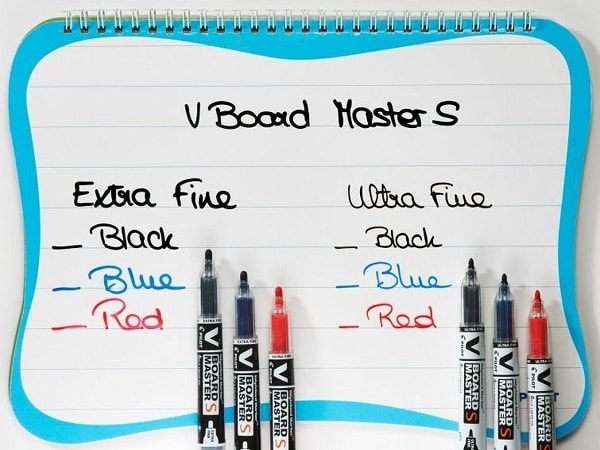 V Board Master S
Extra Fine
— Black
— Blue
— Red
Ultra Fine
— Black
— Blue
— Red
EXTRA FINE
PILOT
V BOARD MASTER S
EXTRA FINE
PILOT
V BOARD MASTER S
EXTRA FINE
PILOT
V BOARD MASTER S
ULTRA FINE
PILOT
V BOARD MASTER S
ULTRA FINE
PILOT
V BOARD MASTER S
ULTRA FINE
PILOT
V BOARD MASTER S